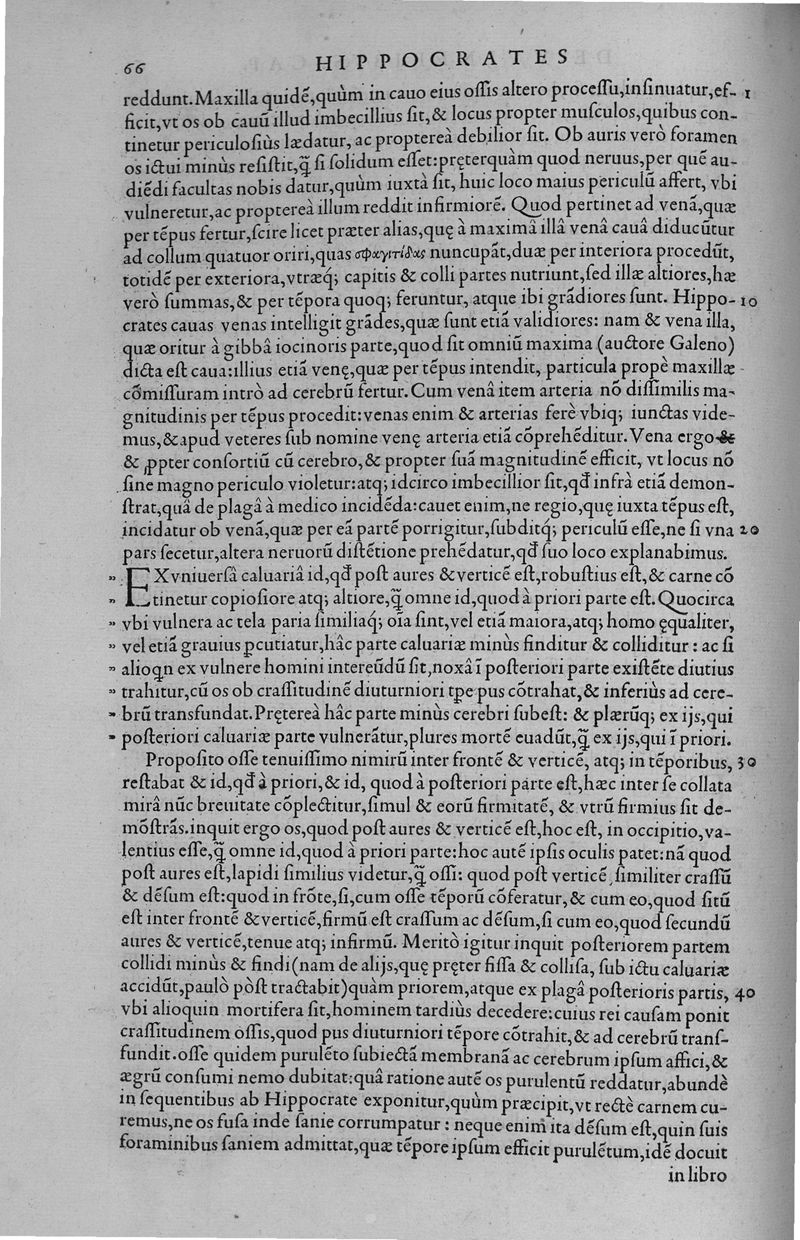 66 HIPPOCRATES
reddunt. Maxilla quidē, quùm in cauo eius ossis altero processu, insinuatur, ef- 1
ficit, vt os ob cauū illud imbecillius sit, & locus propter musculos, quibus con-
tinetur periculosiùs lædatur, ac proptereà debilior sit. Ob auris verò foramen
os ictui minùs resistit, q̃ si solidum esset: pręterquàm quod neruus, per quē au-
diēdi facultas nobis datur, quùm iuxtà sit, huic loco maius periculū affert, vbi
vulneretur, ac proptereà illum reddit infirmiorē. Quod pertinet ad venā, quæ
per tēpus fertur, scire licet præter alias, quę à maximâ illâ venâ cauâ diducūtur
ad collum quatuor oriri, quas σφαγιτίδας nuncupāt, duæ per interiora procedūt,
totidē per exteriora, vtræq; capitis & colli partes nutriunt, sed illæ altiores, hæ
verò summas, & per tēpora quoq; feruntur, atque ibi grādiores sunt. Hippo- 10
crates cauas venas intelligit grādes, quæ sunt etiā validiores: nam & vena illa,
quæ oritur à gibbâ iocinoris parte, quod sit omniū maxima (auctore Galeno)
dicta est caua: illius etiā venę, quæ per tēpus intendit, particula propè maxillæ
cōmissuram intrò ad cerebrū fertur. Cum venâ item arteria nō dissimilis ma-
gnitudinis per tēpus procedit: venas enim & arterias ferè vbiq; iunctas vide-
mus, & apud veteres sub nomine venę arteria etiā cōprehēditur. Vena ergo &
& ꝓpter consortiū cū cerebro, & propter suā magnitudinē efficit, vt locus nō
sine magno periculo violetur: atq; idcirco imbecillior sit, qđ infrà etiā demon-
strat, quâ de plagâ à medico incidēda: cauet enim, ne regio, quę iuxta tēpus est,
incidatur ob venā, quæ per eā partē porrigitur, subditq; periculū esse, ne si vna 20
pars secetur, altera neruorū distētione prehēdatur, qđ suo loco explanabimus.
" EX vniuersâ caluariâ id, qđ post aures & verticē est, robustius est, & carne cō
" tinetur copiosiore atq; altiore, q̃ omne id, quod à priori parte est. Quocirca
" vbi vulnera ac tela paria similiaq; oīa sint, vel etiā maiora, atq; homo ęqualiter,
" vel etiā grauius ꝑcutiatur, hâc parte caluariæ minùs finditur & colliditur: ac si
" alioqn ex vulnere homini intereūdū sit, noxâ ī posteriori parte existēte diutius
" trahitur, cū os ob crassitudinē diuturniori tꝑe pus cōtrahat, & inferiùs ad cere-
" brū transfundat. Pręterea hâc parte minùs cerebri subest: & plærūq; ex ijs, qui
" posteriori caluariæ parte vulnerātur, plures mortē euadūt, q̃ ex ijs, qui ī priori.
Proposito osse tenuissimo nimirū inter frontē & verticē, atq; in tēporibus, 30
restabat & id, qđ à priori, & id, quod à posteriori parte est, hæc inter se collata
mirâ nūc breuitate cōplectitur, simul & eorū firmitatē, & vtrū firmius sit de-
mōstrās. inquit ergo os, quod post aures & verticē est, hoc est, in occipitio, va-
lentius esse, q̃ omne id, quod à priori parte: hoc autē ipsis oculis patet: nā quod
post aures est, lapidi similius videtur, q̃ ossi: quod post verticē, similiter crassū
& dēsum est: quod in frōte, si, cum osse tēporū cōferatur, & cum eo, quod sitū
est inter frontē & verticē, firmū est crassum ac dēsum, si cum eo, quod secundū
aures & verticē, tenue atq; infirmū. Meritò igitur inquit posteriorem partem
collidi minùs & findi (nam de alijs, quę pręter fissa & collisa, sub ictu caluariæ
accidūt, paulò pòst tractabit) quàm priorem, atque ex plagâ posterioris partis, 40
vbi alioquin mortifera sit, hominem tardiùs decedere: cuius rei causam ponit
crassitudinem ossis, quod pus diuturniori tēpore cōtrahit, & ad cerebrū trans-
fundit. osse quidem purulēto subiectā membranā ac cerebrum ipsum affici, &
ægrū consumi nemo dubitat: quâ ratione autē os purulentū reddatur, abundè
in sequentibus ab Hippocrate exponitur, quùm præcipit, vt rectè carnem cu-
remus, ne os fusa inde sanie corrumpatur: neque enim ita dēsum est, quin suis
foraminibus saniem admittat, quæ tēpore ipsum efficit purulētum, idē docuit
in libro